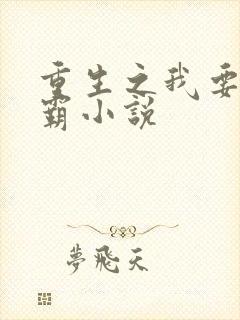 重生之我要
霸小说
夢飛天